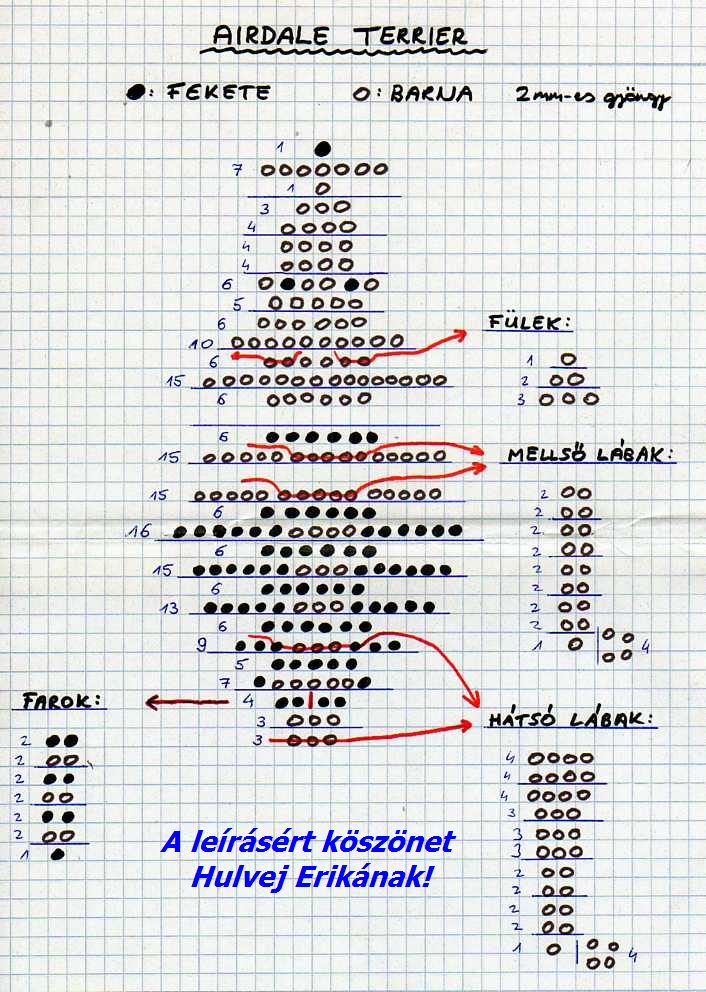 AIRDALE TERRIER
●: FEKETE O: BARNA 2mm-es gyöngy
1
7
1
3
4
4
4
6
5
6
10
6
15
6
6
15
15
6
16
6
15
6
13
6
9
5
7
4
3
3
FÜLEK:
1
2
3
MELLSŐ LÁBAK:
2
2
2
2
2
2
2
2
1 4
HÁTSÓ LÁBAK:
4
4
4
3
3
3
2
2
2
2
1 4
FAROK:
2
2
2
2
2
2
1
A leírásért köszönet
Hulvej Erikának!